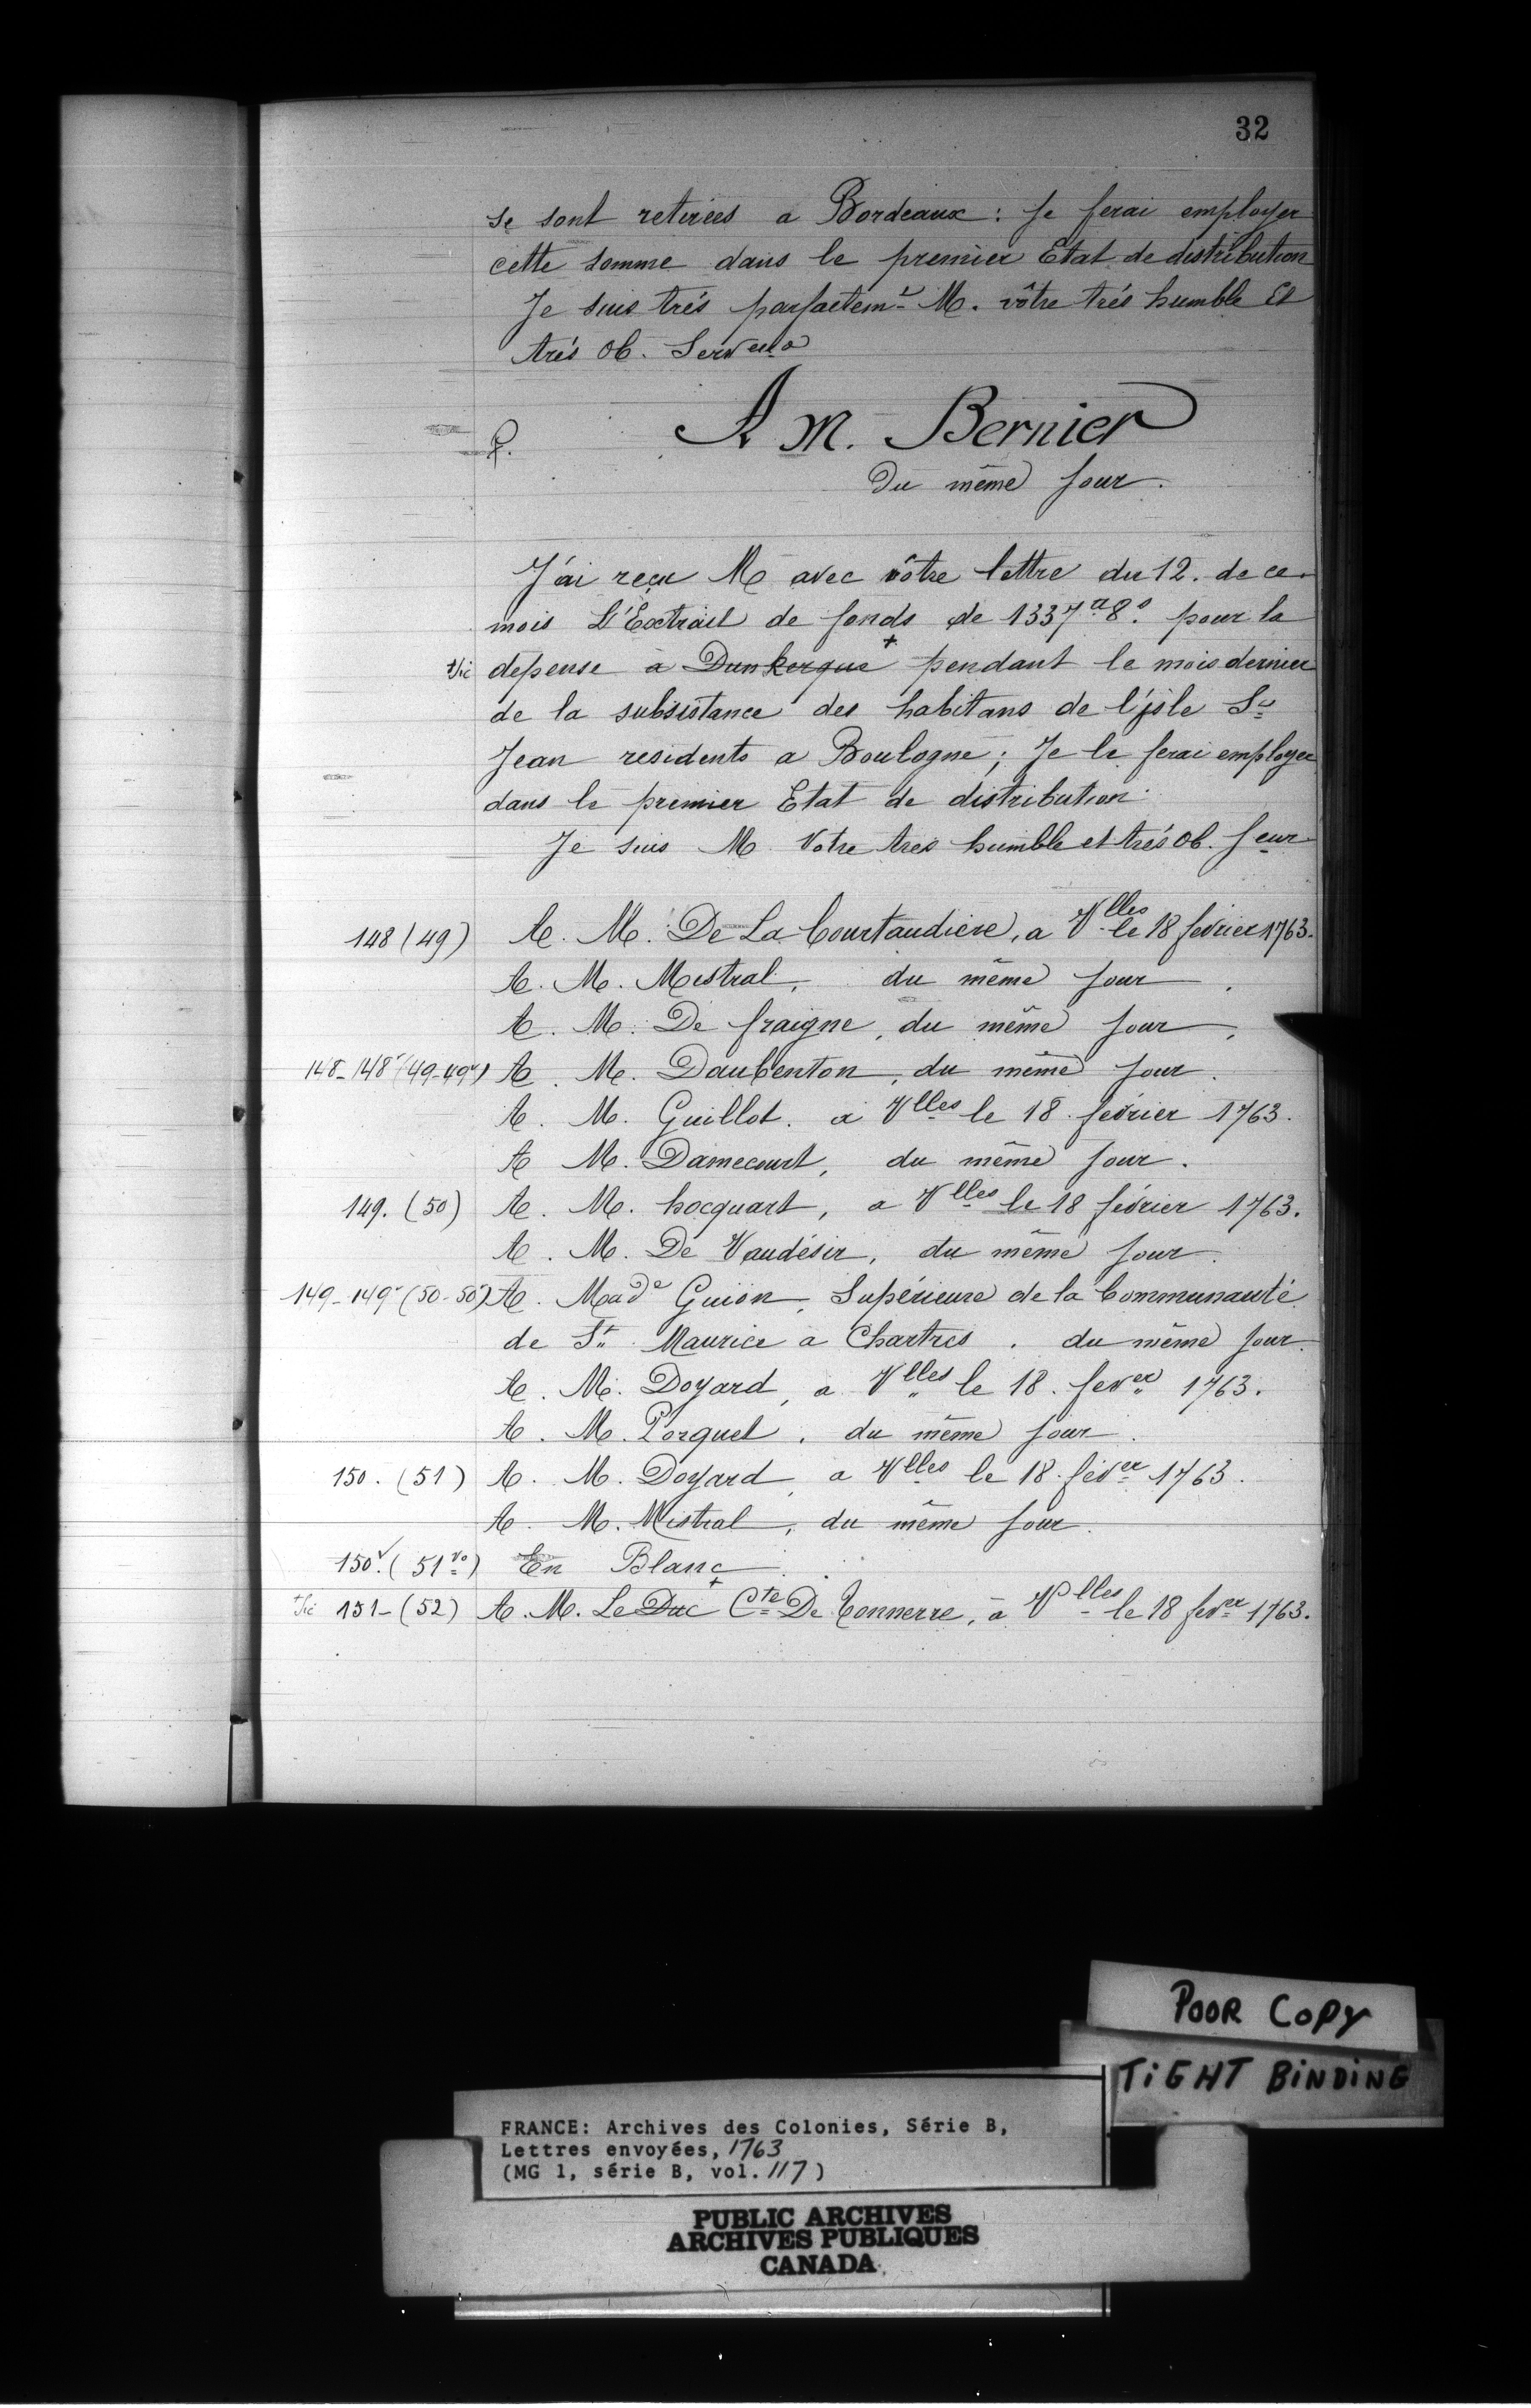 32
se sont retirées a Bordeaux : Je ferai employer
cette somme dans le premier Etat de distribution
Je suis trés parfaitem.t M. vôtre trés humble Et
trés Ob. Serv
A M. Bernier
P.
Du même Jour.
J'ai reçu M avec vôtre lettre du 12. de ce
mois L'Extrait de fonds de 1337.tt 8.s pour la
+sic depense a Dunkerque + pendant le mois dernier
de la subsistance des habitans de l'jsle St
Jean residents a Boulogne ; Je le ferai employer
dans le premier Etat de distribution.
Je suis M Votre tres humble et trés Ob. Seur
148 (49) A. M. De La Courtaudiere, a Vlles le 18 fevrier 1763.
A. M. Mistral, du même Jour.
A. M. De fraigne, du même Jour,
148-148v (49-49v) A. M. Daubenton, du même Jour.
A. M. Guillot. a Vlles le 18. fevrier 1763.
A M. Damecourt, du même Jour.
149. (50) A. M. hocquart, a Vlles le 18 février 1763.
A. M. De Vaudésir, du même Jour.
149-149v (50-50v) A. Made Guion, Supérieure de la Communauté
de St Maurice a Chartres. du même Jour.
A. M. Doyard, a Vlles le 18. fever 1763.
A. M. Porquet, du même Jour.
150. (51) A. M. Doyard, a Vlles le 18. féver 1763.
A. M. Mistral, du même Jour.
150v. (51vo) En Blanc
+sic 151- (52) A. M. Le Duc + Cte De Tonnerre, à Vlles le 18 fever 1763.
POOR COPY
TIGHT BINDING
FRANCE: Archives des Colonies, Série B,
Lettres envoyées, 1763
(MG 1, série B, vol. 117)
PUBLIC ARCHIVES
ARCHIVES PUBLIQUES
CANADA